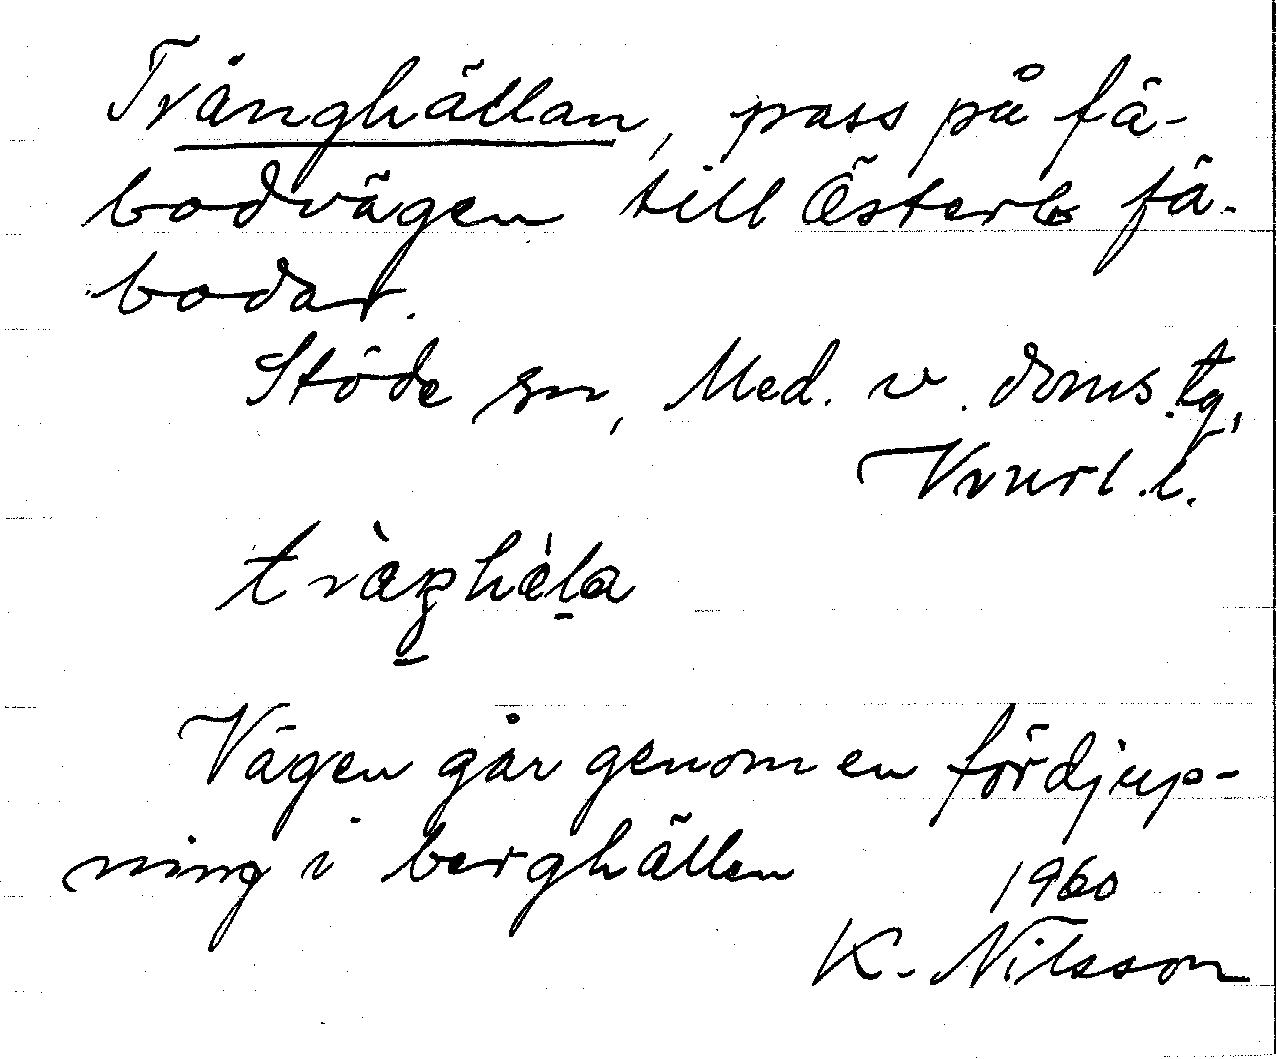 Trånghällan, pass på fä-
bodvägen till Österlo fä-
bodar.
Stöde sn, Med. v. doms. tg,
Vnrl. l.
tràŋhàla
Vägen går genom en fördjup-
ning i berghällen
1960
K. Nilsson